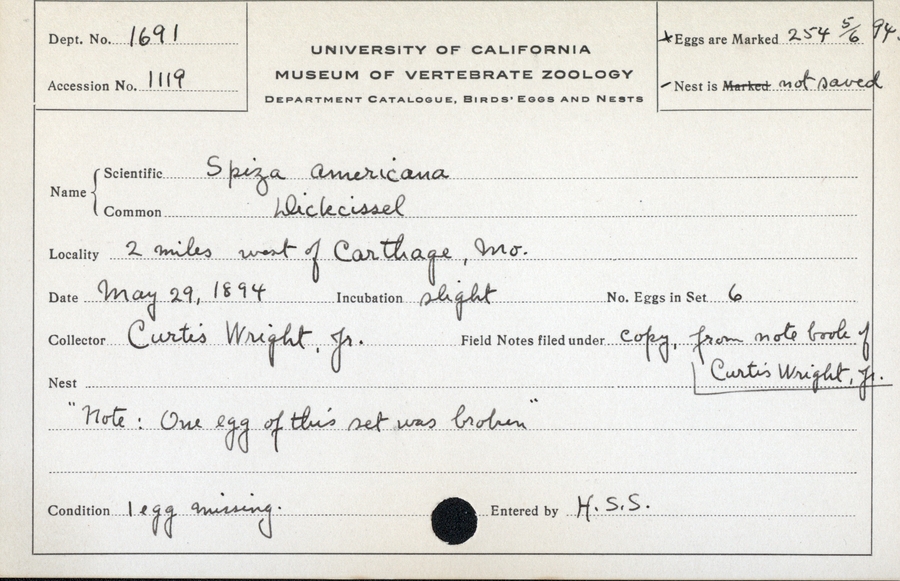 Dept. No. 1691
Accession No. 1119
UNIVERSITY OF CALIFORNIA
MUSEUM OF VERTEBRATE ZOOLOGY
DEPARTMENT CATALOGUE, BIRDS' EGGS AND NESTS
Eggs are Marked 254 5/6 94.
Nest is Marked not saved
Name
Scientific Spiza americana
Common Dickcissel
Locality 2 miles west of Carthage, Mo.
Date May 29, 1894 Incubation slight No. Eggs in Set 6
Collector Curtis Wright, Jr. Field Notes filed under copy, from note book of
Curtis Wright, Jr.
Nest
"Note: One egg of this set was broken"
Condition 1 egg missing. Entered by H.S.S.